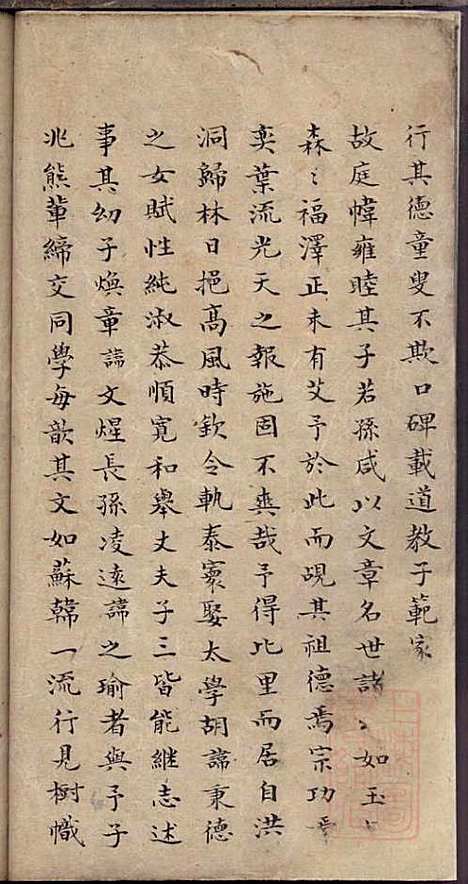 行其德童叟不欺口碑載道教子範家
故庭幃雍睦其子若孫咸以文章名世諸〻如玉
森〻福澤正未有艾予於此而覘其祖德焉宗功焉
奕葉流光天之報施固不爽哉予得比里而居自洪
洞歸林日挹高風時欽令軌泰寰娶太學胡諱秉德
之女賦性純淑恭順寬和舉丈夫子三皆能継志述
事其幼子煥章諱文煋長孫凌遠諱之瑜者與予子
兆熊軰締交同學每歆其文如蘇韓一流行見樹幟